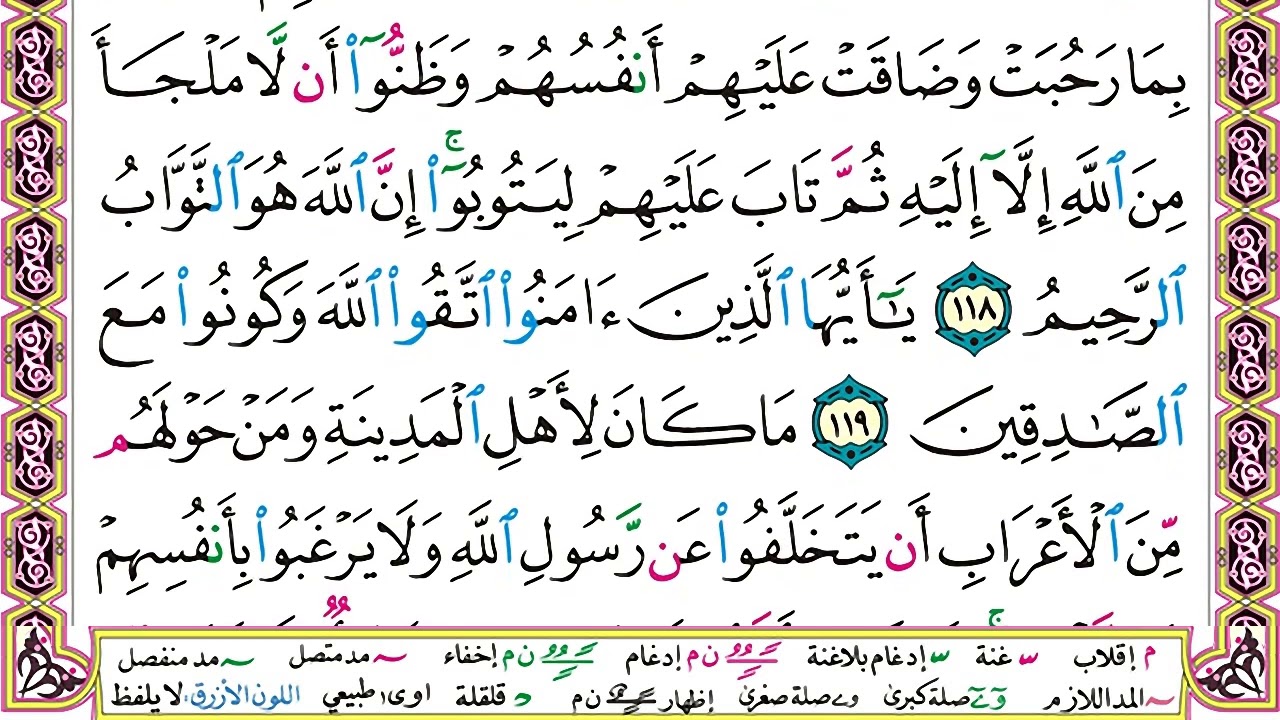 بِمَا رَحُبَتْ وَضَاقَتْ عَلَيْهِمْ أَنفُسُهُمْ وَظَنُّوٓا۟ أَن لَّا مَلْجَأَ
مِنَ ٱللَّهِ إِلَّآ إِلَيْهِ ثُمَّ تَابَ عَلَيْهِمْ لِيَتُوبُوٓا۟ ۚ إِنَّ ٱللَّهَ هُوَ ٱلتَّوَّابُ
ٱلرَّحِيمُ ١١٨ يَـٰٓأَيُّهَا ٱلَّذِينَ ءَامَنُوا۟ ٱتَّقُوا۟ ٱللَّهَ وَكُونُوا۟ مَعَ
ٱلصَّـٰدِقِينَ ١١٩ مَا كَانَ لِأَهْلِ ٱلْمَدِينَةِ وَمَنْ حَوْلَهُم
مِّنَ ٱلْأَعْرَابِ أَن يَتَخَلَّفُوا۟ عَن رَّسُولِ ٱللَّهِ وَلَا يَرْغَبُوا۟ بِأَنفُسِهِمْ
م إقلاب غنة إدغام بلاغنة ن م إدغام ن م إخفاء مد متصل مد منفصل
المد اللازم صلة كبرى صلة صغرى إظهار ن م قلقلة اوى طبيعي اللون الأزرق: لا يلفظ